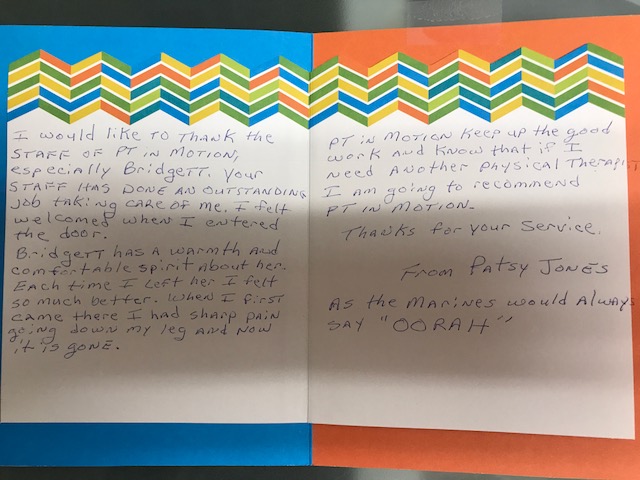 I would like to thank the
staff of PT in Motion,
especially Bridgett. Your
staff has done an outstanding
job taking care of me. I felt
welcomed when I entered
the door.
Bridgett has a warmth and
comfortable spirit about her.
Each time I left her I felt
so much better. When I first
came there I had sharp pain
going down my leg and now
it is gone.
PT in Motion keep up the good
work and know that if I
need another physical therapist
I am going to recommend
PT in Motion.
Thanks for your service.
From Patsy Jones
As the Marines would always
say "OORAH"